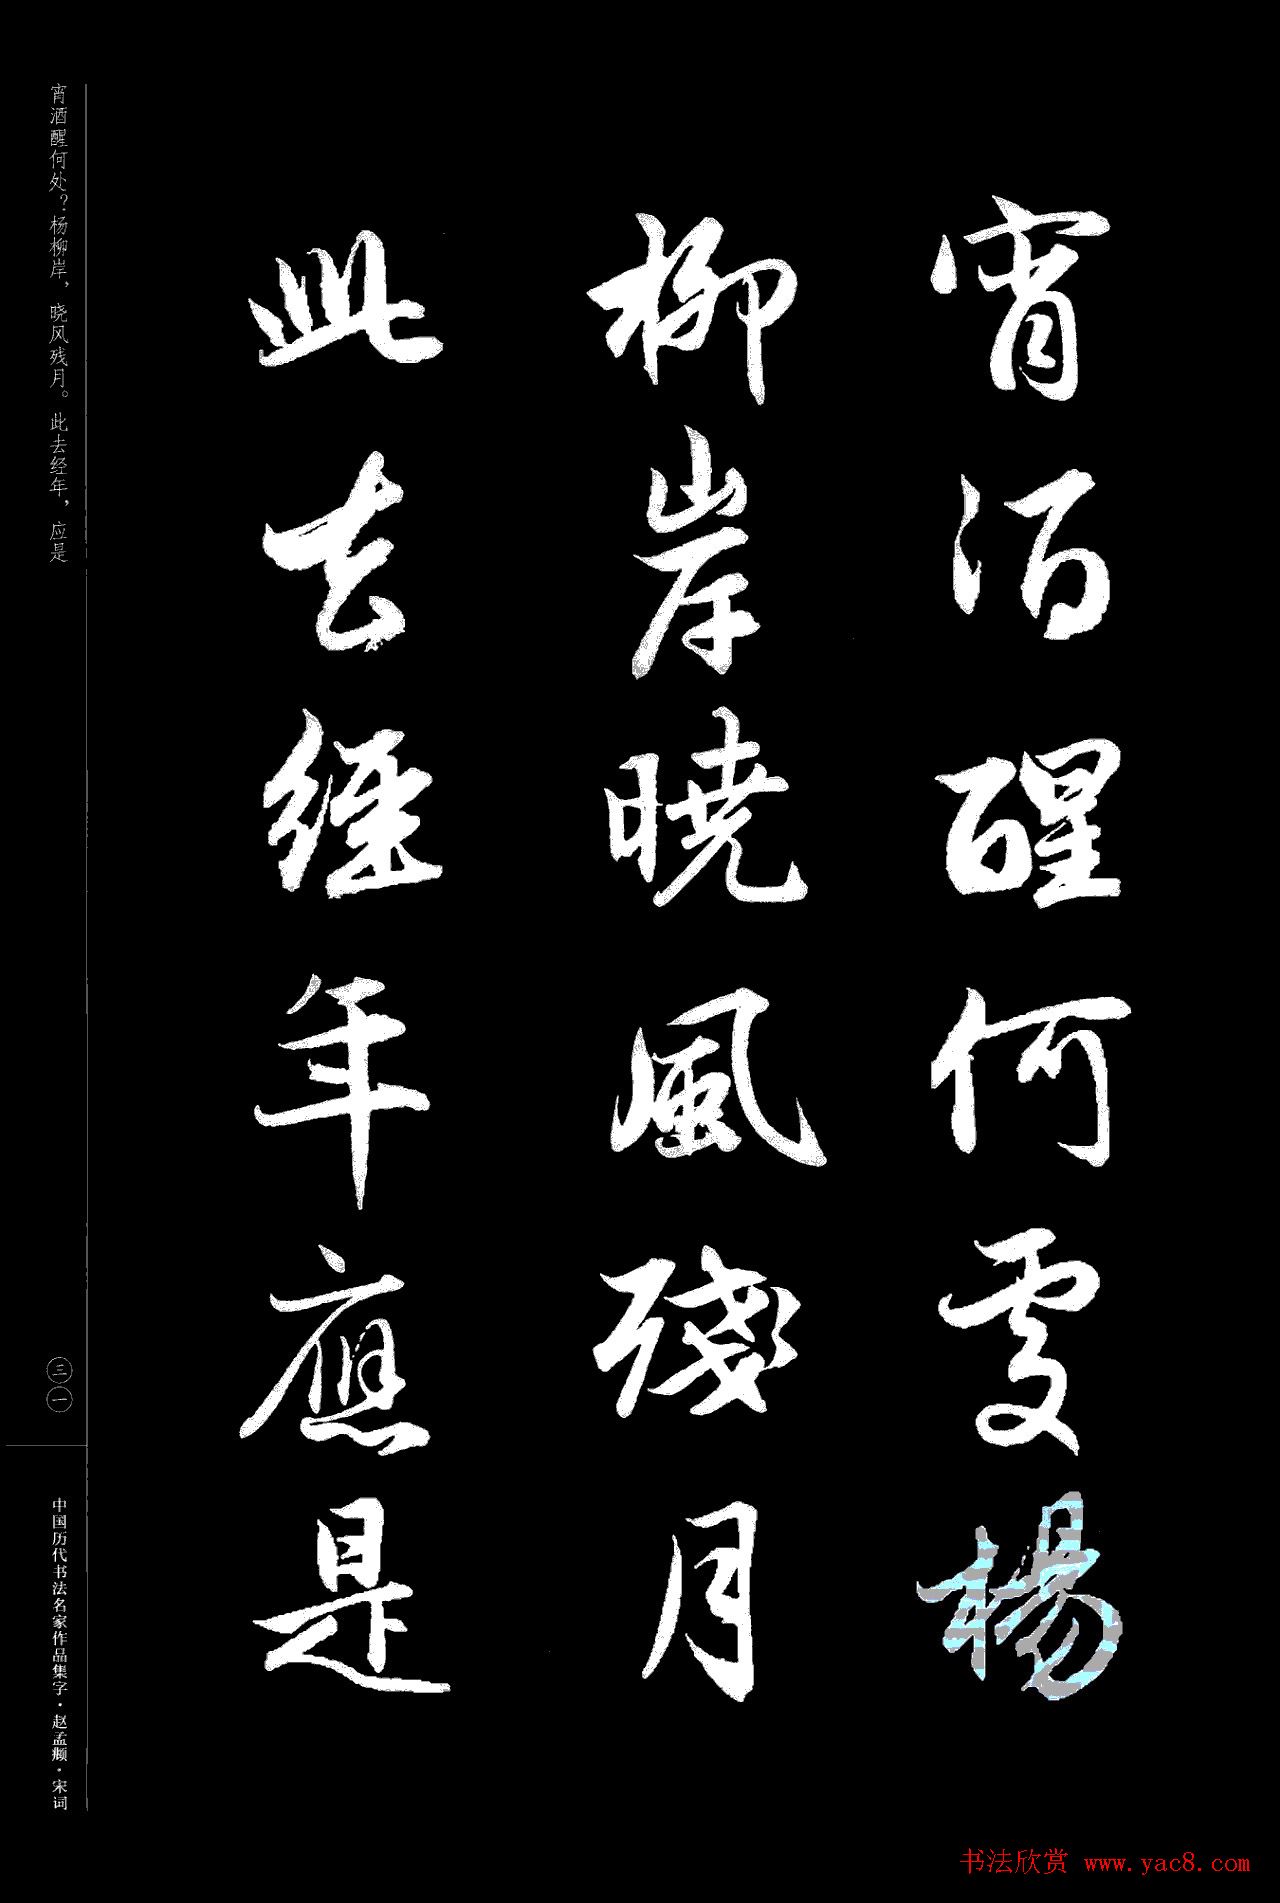 宵酒醒何處楊
柳岸曉風殘月
此去經年應是
宵酒醒何处？杨柳岸，晓风残月。此去经年，应是
三一
中国历代书法名家作品集字·赵孟頫·宋词
书法欣赏 www.yac8.com